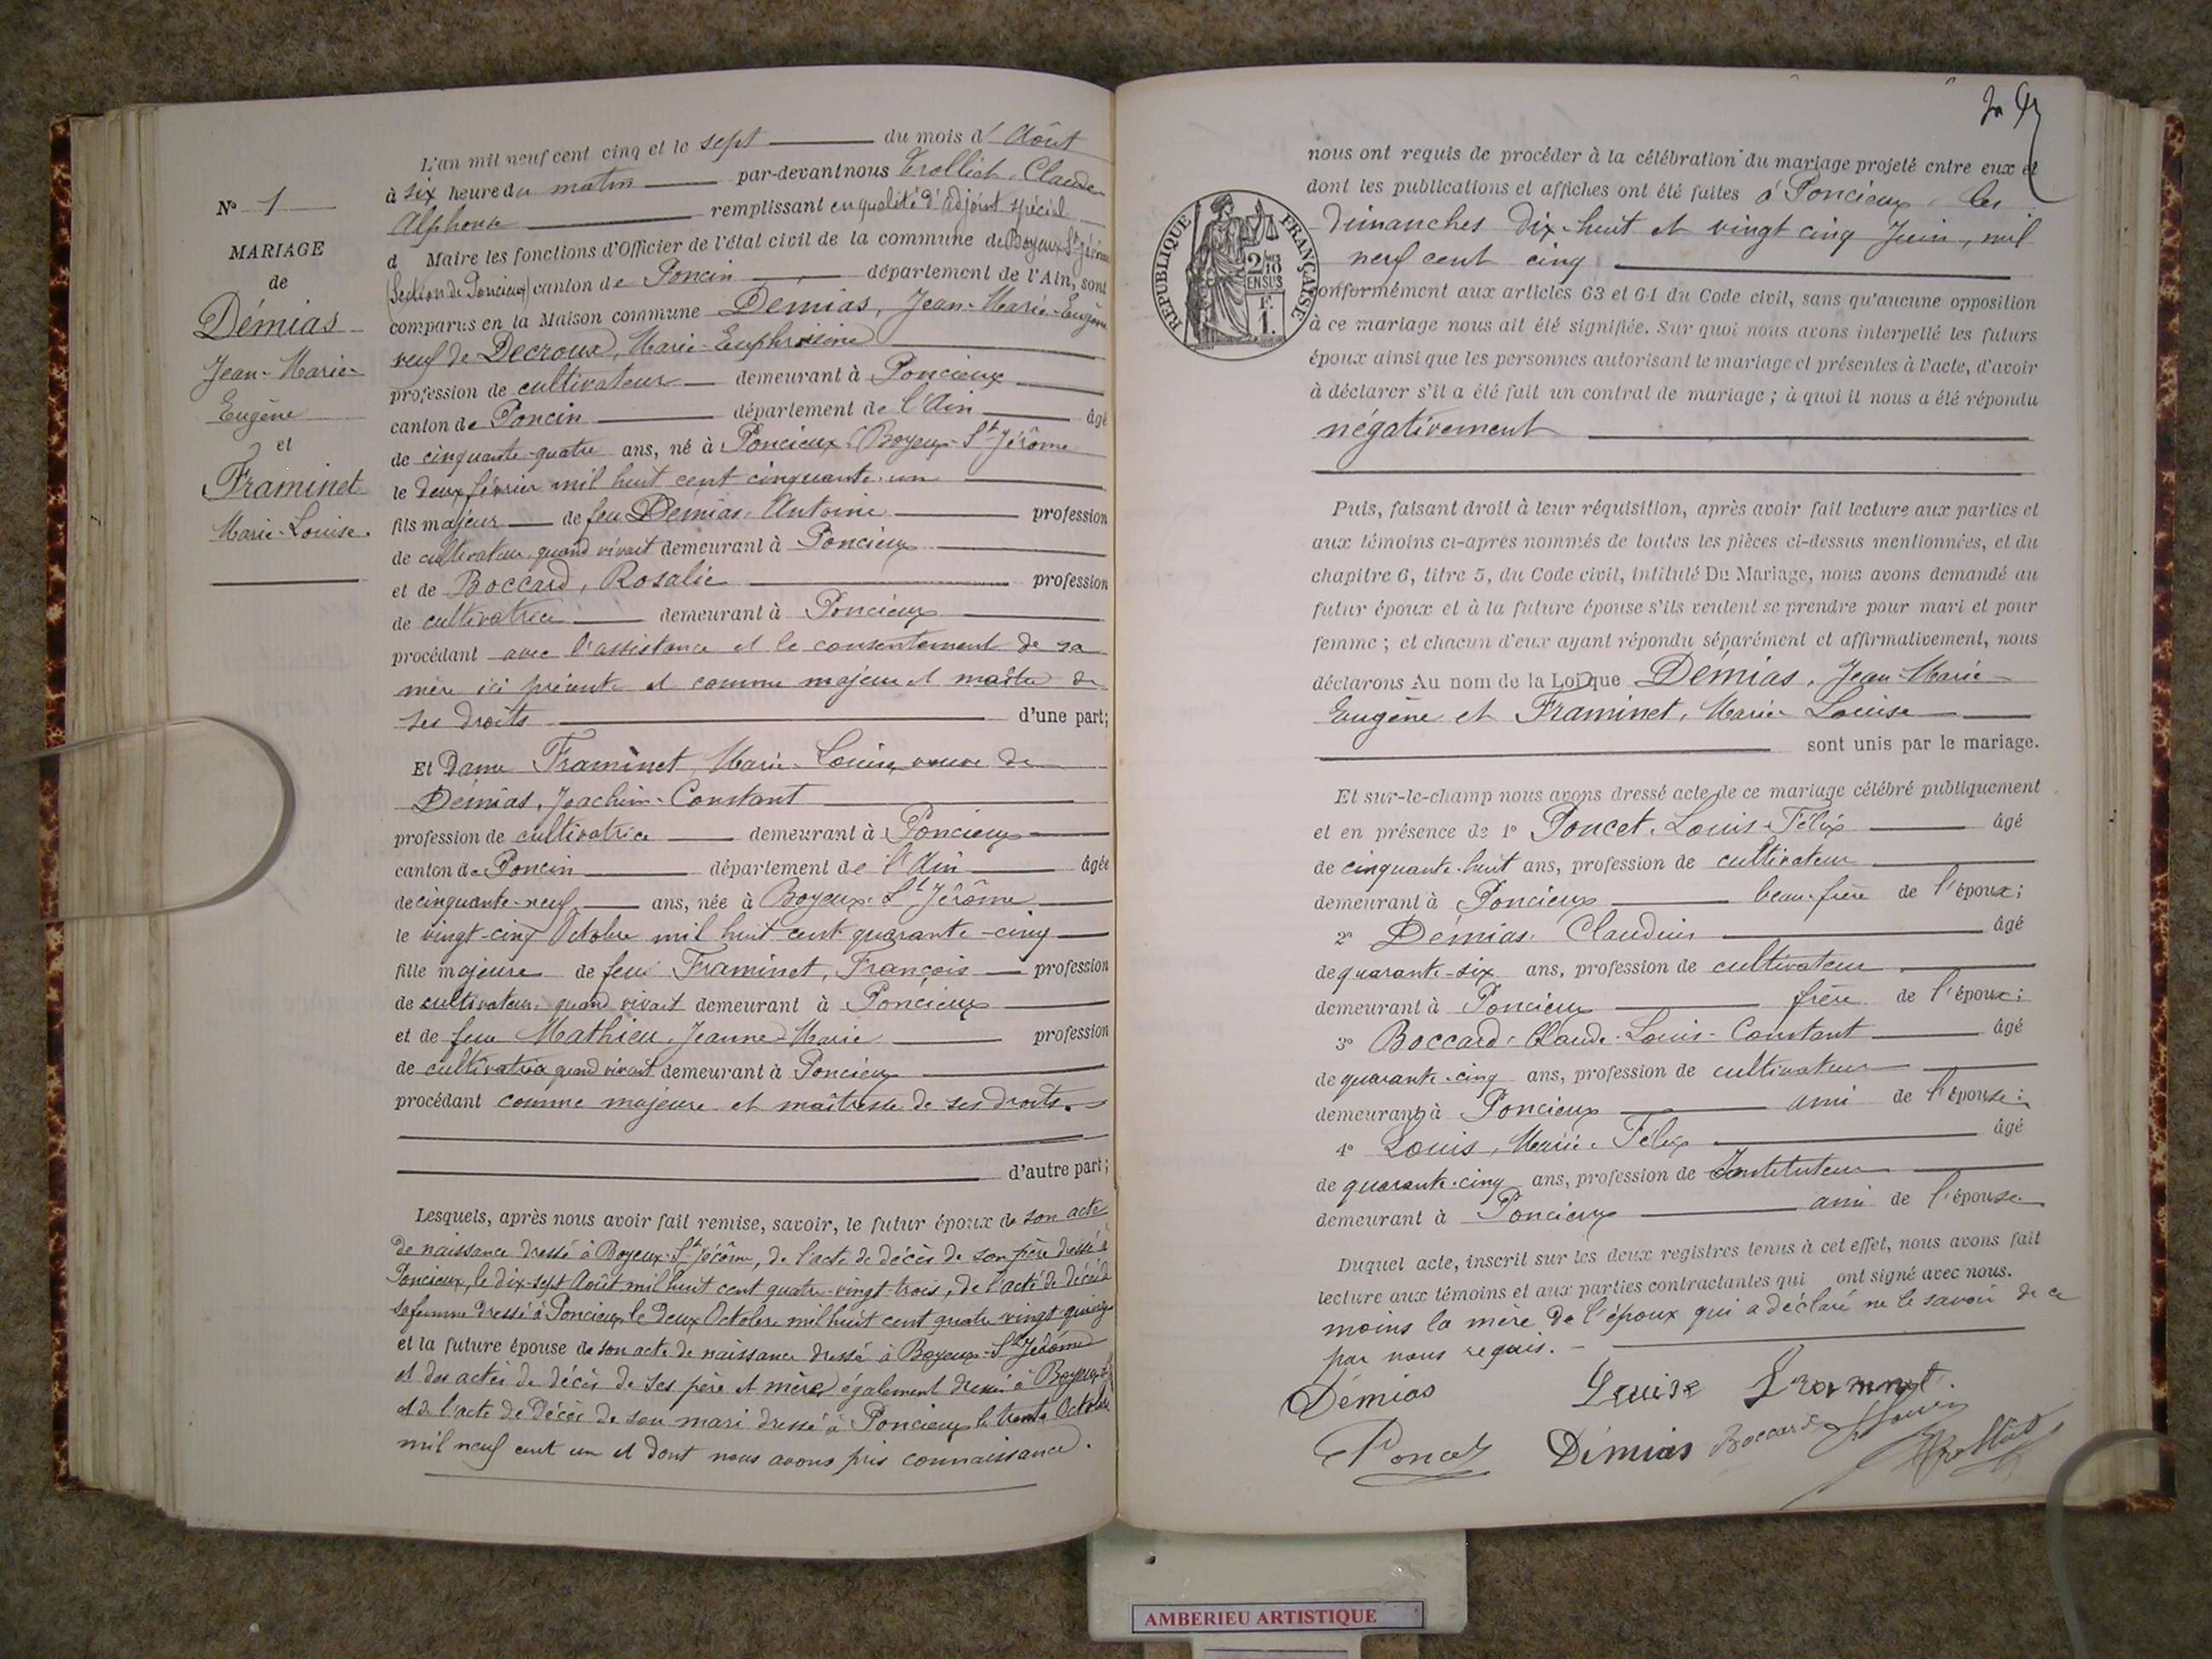 N° 1
MARIAGE
de
Démias
Jean-Marie-
Eugène
et
Framinet
Marie-Louise.
L'an mil neuf cent cinq et le sept du mois d'Août
à six heure du matin par-devant nous Trolliet, Claude
Alphonse remplissant en qualité d'adjoint spécial
d Maire les fonctions d'Officier de l'état civil de la commune de Boyeux-St-Jérôme
(Section de Poncieux) canton de Poncin département de l'Ain, sont
comparus en la Maison commune Démias, Jean-Marie-Eugène
veuf de Decroux, Marie-Euphrosine
profession de cultivateur demeurant à Poncieux
canton de Poncin département de l'Ain âgé
de cinquante-quatre ans, né à Poncieux-Boyeux-St-Jérôme
le deux février mil huit cent cinquante-un
fils majeur de feu Démias, Antoine profession
de cultivateur quand vivait demeurant à Poncieux
et de Boccard, Rosalie profession
de cultivatrice demeurant à Poncieux
procédant avec l'assistance et le consentement de sa
mère ici présente et comme majeur et maître de
ses droits d'une part;
Et Dame Framinet, Marie-Louise, veuve de
Démias, Joachim-Constant
profession de cultivatrice demeurant à Poncieux
canton de Poncin département de l'Ain âgée
de cinquante-neuf ans, née à Boyeux-St-Jérôme
le vingt-cinq Octobre mil huit cent quarante-cinq
fille majeure de feu Framinet, François profession
de cultivateur quand vivait demeurant à Poncieux
et de feue Mathieu, Jeanne-Marie profession
de cultivatrice quand vivait demeurant à Poncieux
procédant comme majeure et maîtresse de ses droits.
d'autre part;
Lesquels, après nous avoir fait remise, savoir, le futur époux de son acte
de naissance dressé à Boyeux-St-Jérôme, de l'acte de décès de son père dressé à
Poncieux, le dix-sept Août mil huit cent quatre-vingt-trois, de l'acte de décès de
sa femme dressé à Poncieux, le deux Octobre mil huit cent quatre-vingt-quinze
et la future épouse de son acte de naissance dressé à Boyeux-St-Jérôme
et des actes de décès de ses père et mère également dressés à Boyeux-St-J
et de l'acte de décès de son mari dressé à Poncieux le trente Octobre
mil neuf cent un et dont nous avons pris connaissance.
nous ont requis de procéder à la célébration du mariage projeté entre eux et
dont les publications et affiches ont été faites à Poncieux, les
dimanches dix-huit et vingt cinq Juin, mil
neuf cent cinq
RÉPUBLIQUE FRANÇAISE
2/10 EN SUS
F. 1.
conformément aux articles 63 et 64 du Code civil, sans qu'aucune opposition
à ce mariage nous ait été signifiée. Sur quoi nous avons interpellé les futurs
époux ainsi que les personnes autorisant le mariage et présentes à l'acte, d'avoir
à déclarer s'il a été fait un contrat de mariage; à quoi il nous a été répondu
négativement
Puis, faisant droit à leur réquisition, après avoir fait lecture aux parties et
aux témoins ci-après nommés de toutes les pièces ci-dessus mentionnées, et du
chapitre 6, titre 5, du Code civil, intitulé Du Mariage, nous avons demandé au
futur époux et à la future épouse s'ils veulent se prendre pour mari et pour
femme; et chacun d'eux ayant répondu séparément et affirmativement, nous
déclarons Au nom de la Loi que Démias, Jean-Marie-
Eugène et Framinet, Marie-Louise
sont unis par le mariage.
Et sur-le-champ nous avons dressé acte de ce mariage célébré publiquement
et en présence de 1° Poncet, Louis-Félix âgé
de cinquante-huit ans, profession de cultivateur
demeurant à Poncieux beau-frère de l'époux;
2° Démias, Claudius âgé
de quarante-six ans, profession de cultivateur
demeurant à Poncieux frère de l'époux;
3° Boccard, Claude-Louis-Constant âgé
de quarante-cinq ans, profession de cultivateur
demeurant à Poncieux ami de l'épouse;
4° Louis, Marie-Félix âgé
de quarante-cinq ans, profession de Instituteur
demeurant à Poncieux ami de l'épouse
Duquel acte, inscrit sur les deux registres tenus à cet effet, nous avons fait
lecture aux témoins et aux parties contractantes qui ont signé avec nous.
moins la mère de l'époux qui a déclaré ne le savoir de ce
par nous requis.
Démias Louise Framinet.
Poncet Démias Boccard Louis Trolliet
AMBERIEU ARTISTIQUE